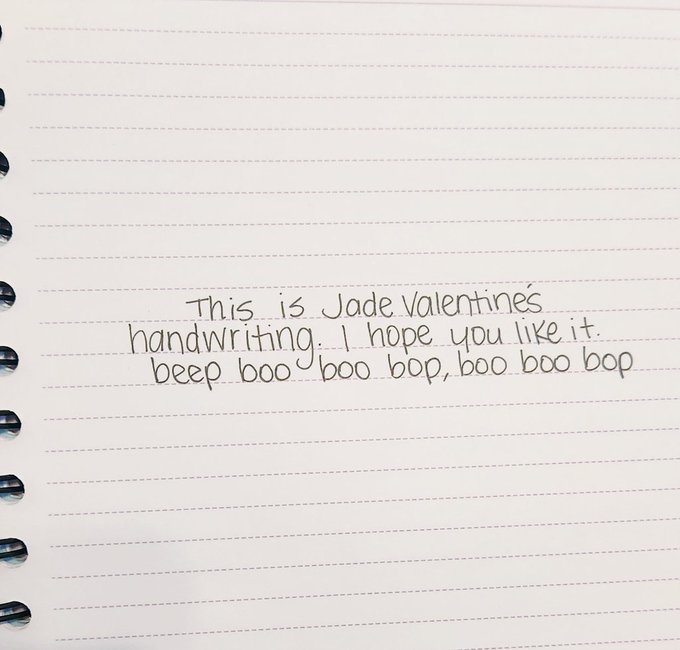 This is Jade Valentine's
handwriting. I hope you like it.
beep boo boo bop, boo boo bop